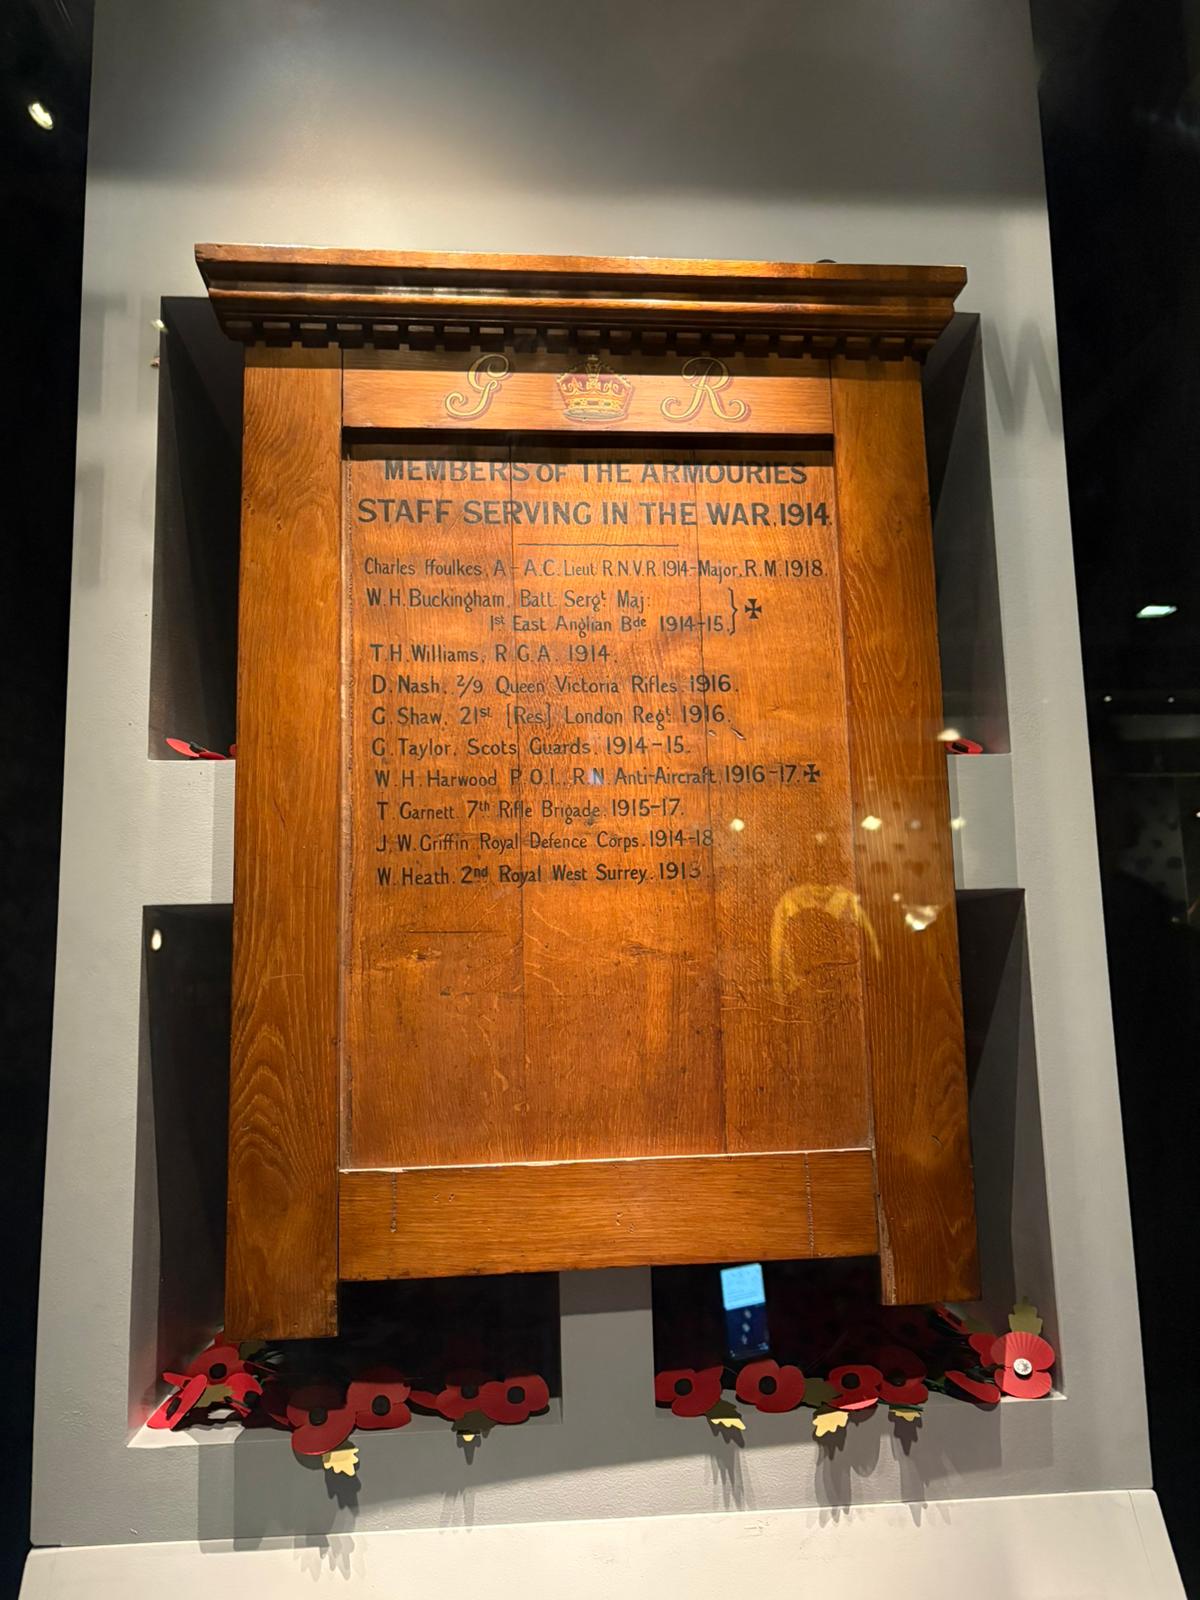 G R
MEMBERS OF THE ARMOURIES
STAFF SERVING IN THE WAR, 1914.
Charles ffoulkes, A-A.C. Lieut R.N.V.R. 1914-Major, R.M. 1918.
W.H. Buckingham, Batt. Sergt Maj:
1st East Anglian Bde 1914-15.} ✠
T.H. Williams, R.G.A. 1914.
D. Nash, 2/9 Queen Victoria Rifles. 1916.
G. Shaw, 21st [Res] London Regt. 1916.
G. Taylor. Scots Guards. 1914-15.
W.H. Harwood P.O.I., R.N. Anti-Aircraft, 1916-17. ✠
T. Garnett. 7th Rifle Brigade. 1915-17.
J.W. Griffin Royal Defence Corps. 1914-18
W. Heath. 2nd Royal West Surrey.